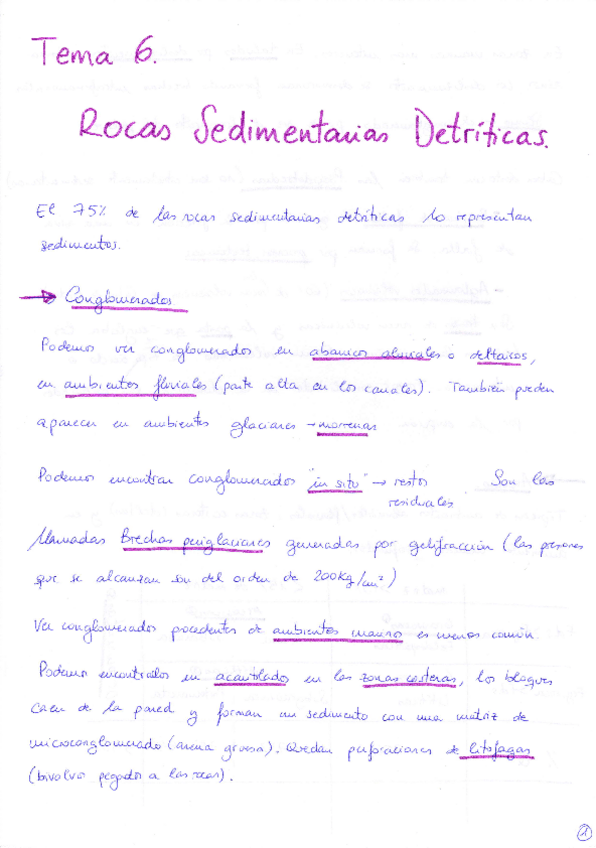 Tema 6.
Rocas Sedimentarias Detríticas.
El 75% de las rocas sedimentarias detríticas lo representan
sedimentos.
→ Conglomerados
Podemos ver conglomerados en abanicos aluviales o deltaicos,
en ambientes fluviales (parte alta en los canales). También pueden
aparecer en ambientes glaciares → morrenas
Podemos encontrar conglomerados "in situ" → restos Son las
residuales
llamadas Brechas periglaciares generadas por gelifracción (las presiones
que se alcanzan son del orden de 200kg/cm²)
Ver conglomerados procedentes de ambientes marino es menos común
Podemos encontrarlos en acantilados en las zonas costeras, los bloques
caen de la pared y forman un sedimento con una matriz de
microconglomerado (arena gruesa). Quedan perforaciones de litófagas
(bivalvos pegados a las rocas).
1